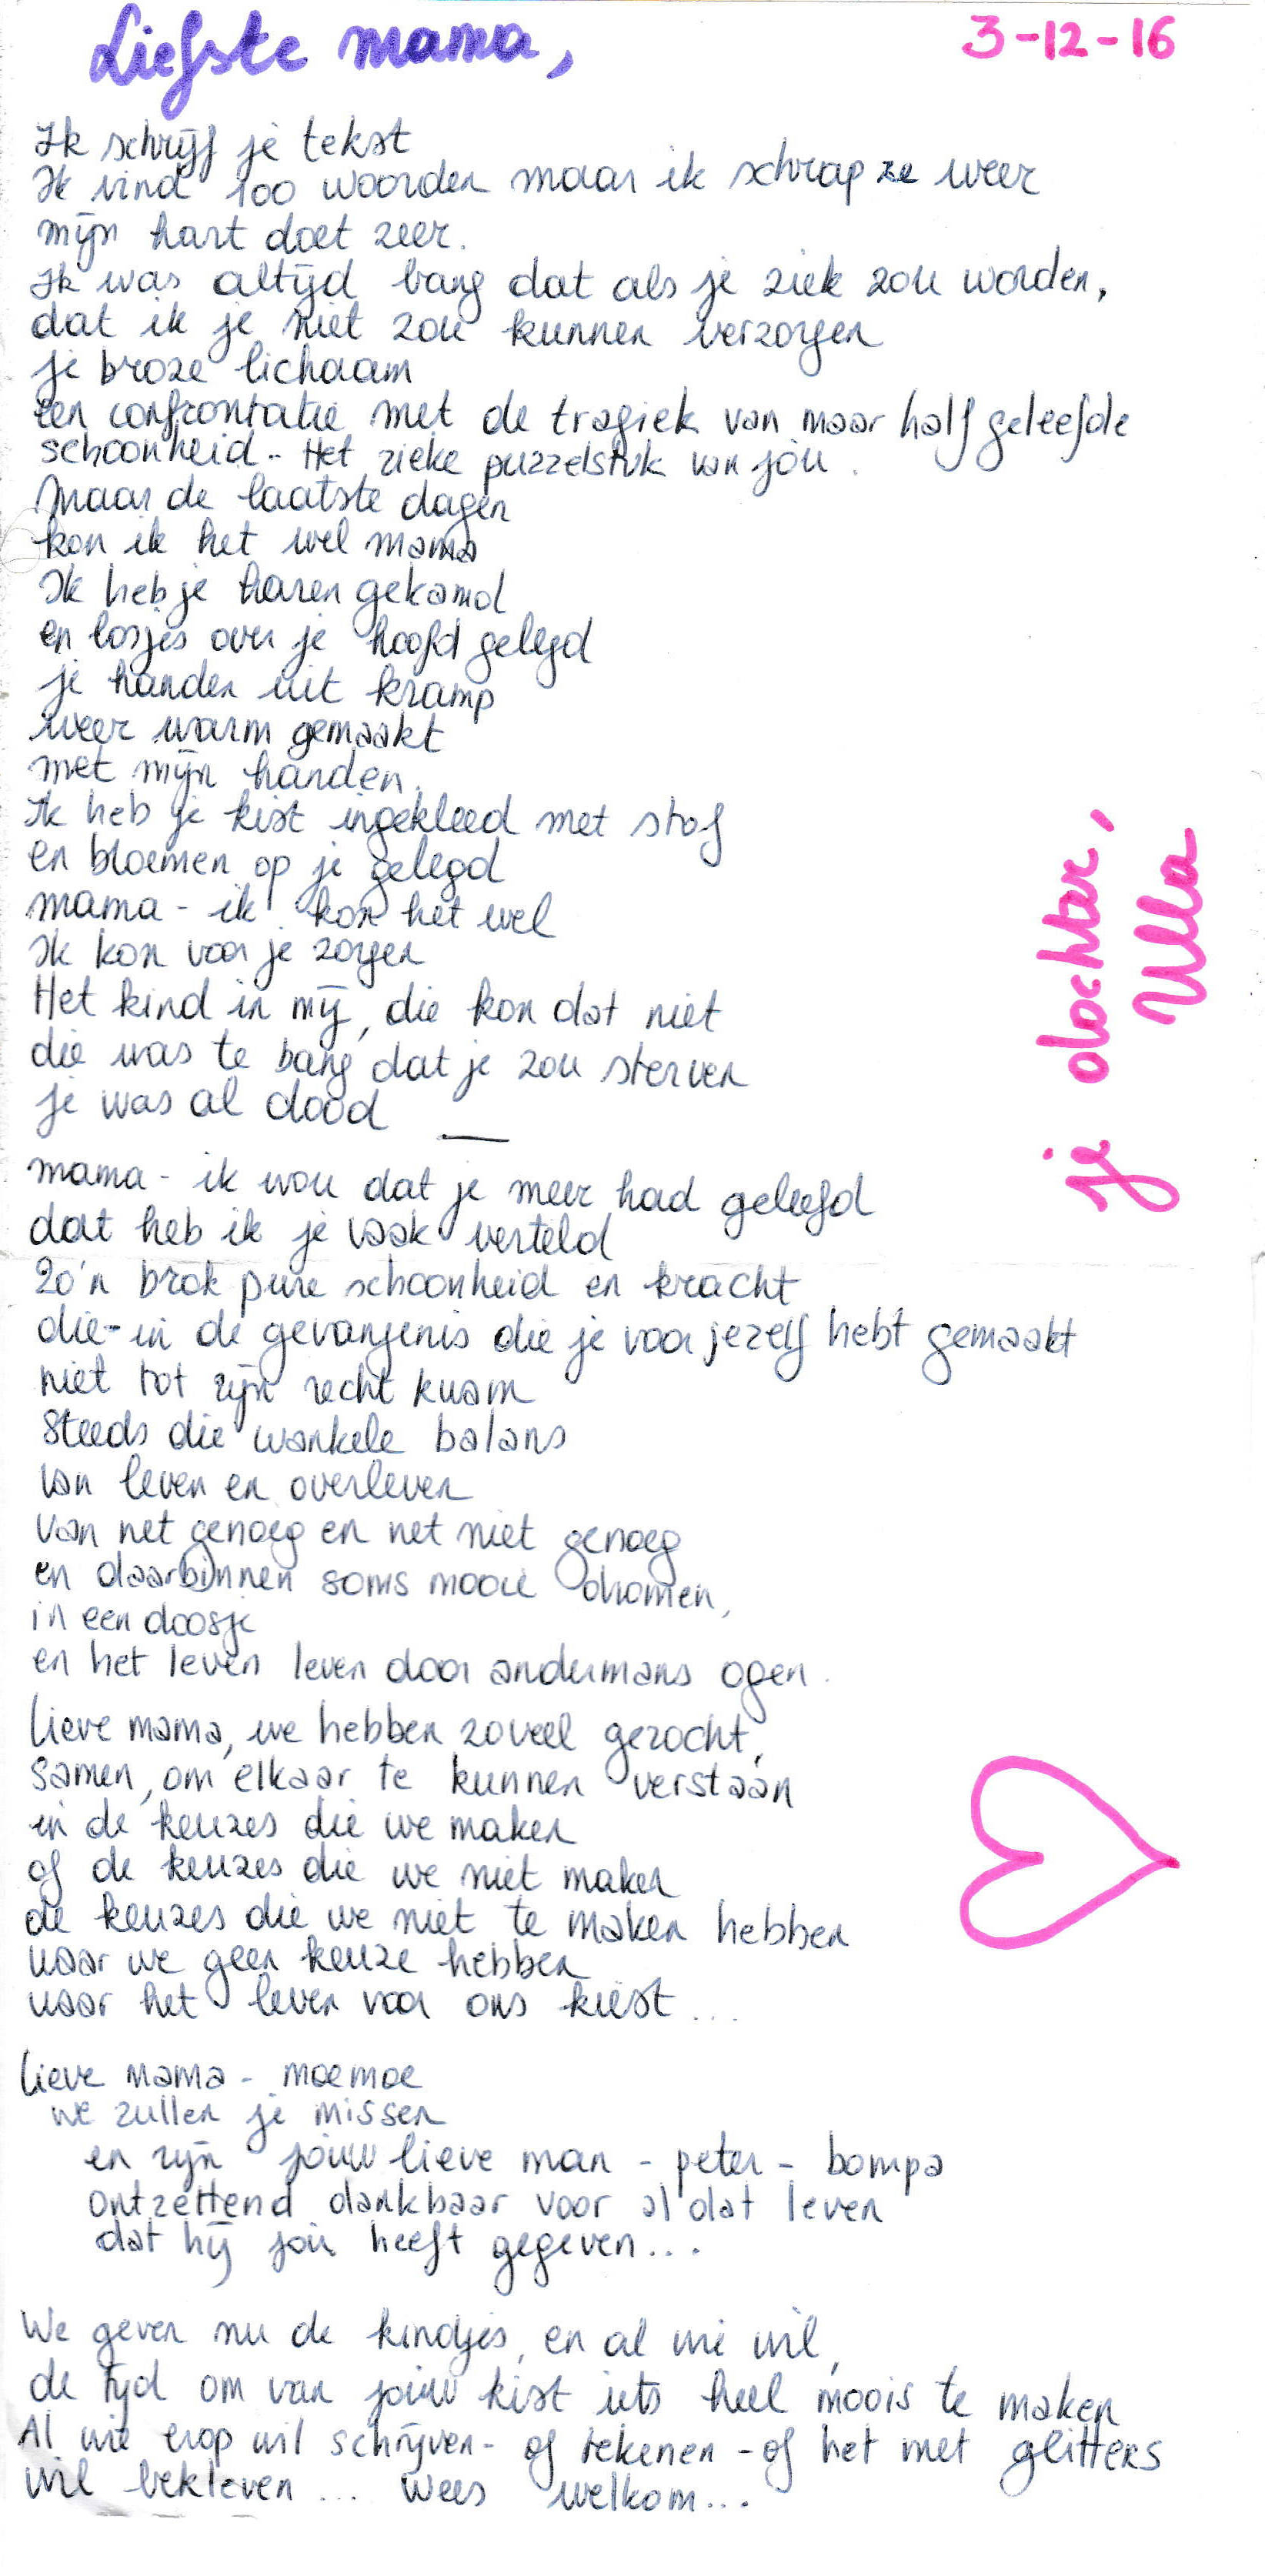 Liefste mama,
3-12-16
Ik schrijf je tekst
Ik vind 100 woorden maar ik schrap ze weer
mijn hart doet zeer.
Ik was altijd bang dat als je ziek zou worden,
dat ik je niet zou kunnen verzorgen
je broze lichaam
een confrontatie met de tragiek van maar half geleefde
schoonheid.. Het zieke puzzelstuk van jou.
Maar de laatste dagen
kon ik het wel mama
Ik heb je haren gekamd
en losjes over je hoofd gelegd
je handen uit kramp
weer warm gemaakt
met mijn handen.
Ik heb je kist ingekleed met stof
en bloemen op je gelegd
mama - ik kon het wel
Ik kon voor je zorgen
Het kind in mij, die kon dat niet
die was te bang dat je zou sterven
je was al dood
mama - ik wou dat je meer had geleefd
dat heb ik je vaak verteld
zo'n brok pure schoonheid en kracht
die - in de gevangenis die je voor jezelf hebt gemaakt
niet tot zijn recht kwam
Steeds die wankele balans
van leven en overleven
van net genoeg en net niet genoeg
en daarbinnen soms mooie dromen,
in een doosje
en het leven leven door andermans ogen.
Lieve mama, we hebben zoveel gezocht,
samen, om elkaar te kunnen verstaan
in de keuzes die we maken
of de keuzes die we niet maken
de keuzes die we niet te maken hebben
waar we geen keuze hebben
waar het leven voor ons kiest...
Lieve mama - moemoe
we zullen je missen
en zijn jouw lieve man - peter - bompa
ontzettend dankbaar voor al dat leven
dat hij jou heeft gegeven...
We geven nu de kindjes, en al wie wil,
de tijd om van jouw kist iets heel moois te maken
Al wie erop wil schrijven - of tekenen - of het met glitters
wil bekleven ... Wees welkom...
je dochter,
Ulla